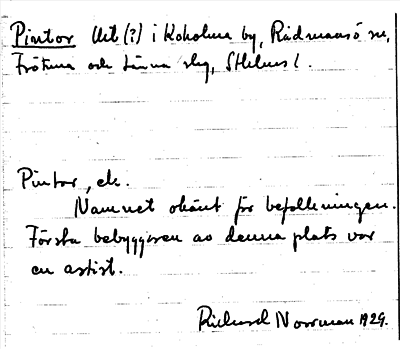 Pintor Uet (?) i Koholma by, Rådmansö sn,
Frötuna och Länna slg, Sthlms l.
Pintor, ele.
Namnet okänt för befolkningen.
Första bebyggaren av denna plats var
en artist.
Richard Norrman 1929.